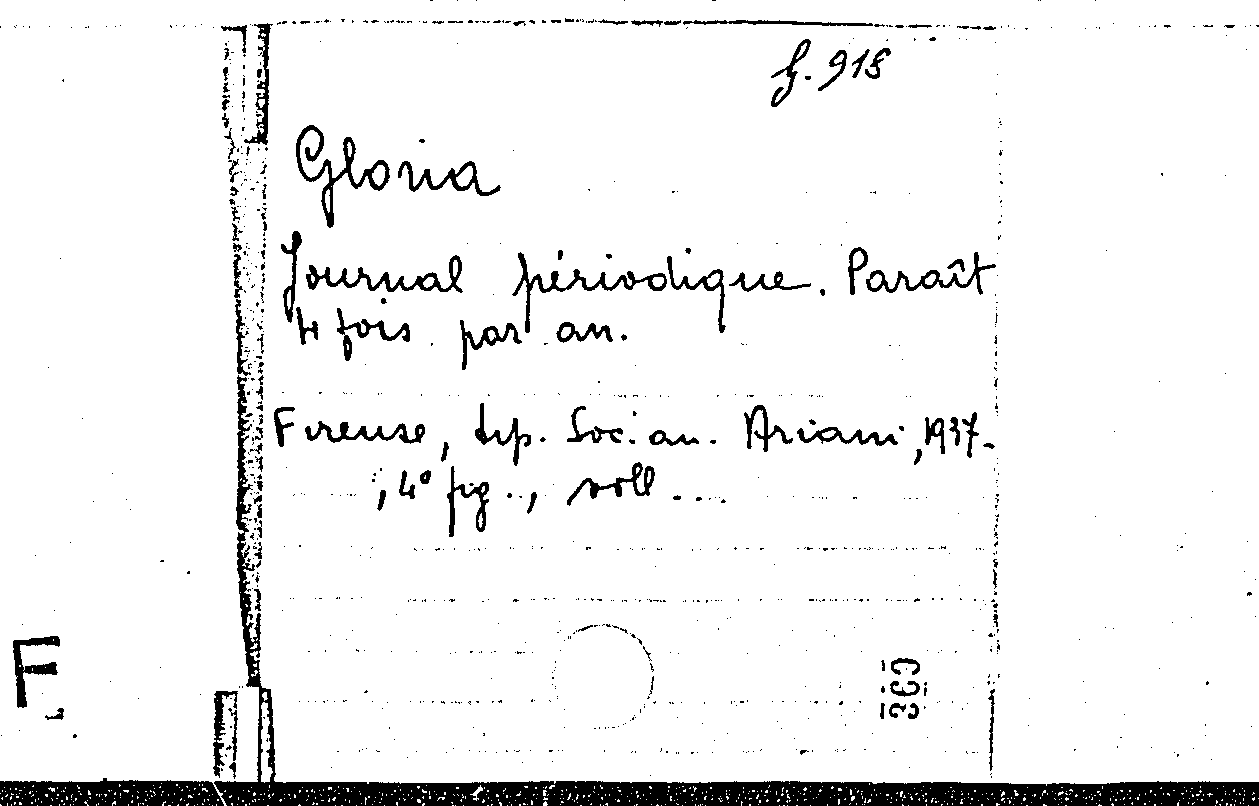 G. 918
Gloria
Journal périodique. Paraît
4 fois par an.
Firenze, tip. Soc. an. Ariani, 1937-
, 4° fig., voll...
F
360